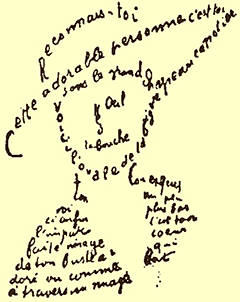 Reconnais-toi
Cette adorable personne c'est toi
Sous le grand chapeau canotier
Œil
la bouche
Voici l'ovale de ta figure
Ton
Cou exquis
voi
ci enfin
l'impar
faite image
de ton buste a
doré vu comme
à travers un nuage
un peu
plus bas
c'est ton
coeur
qui
bat